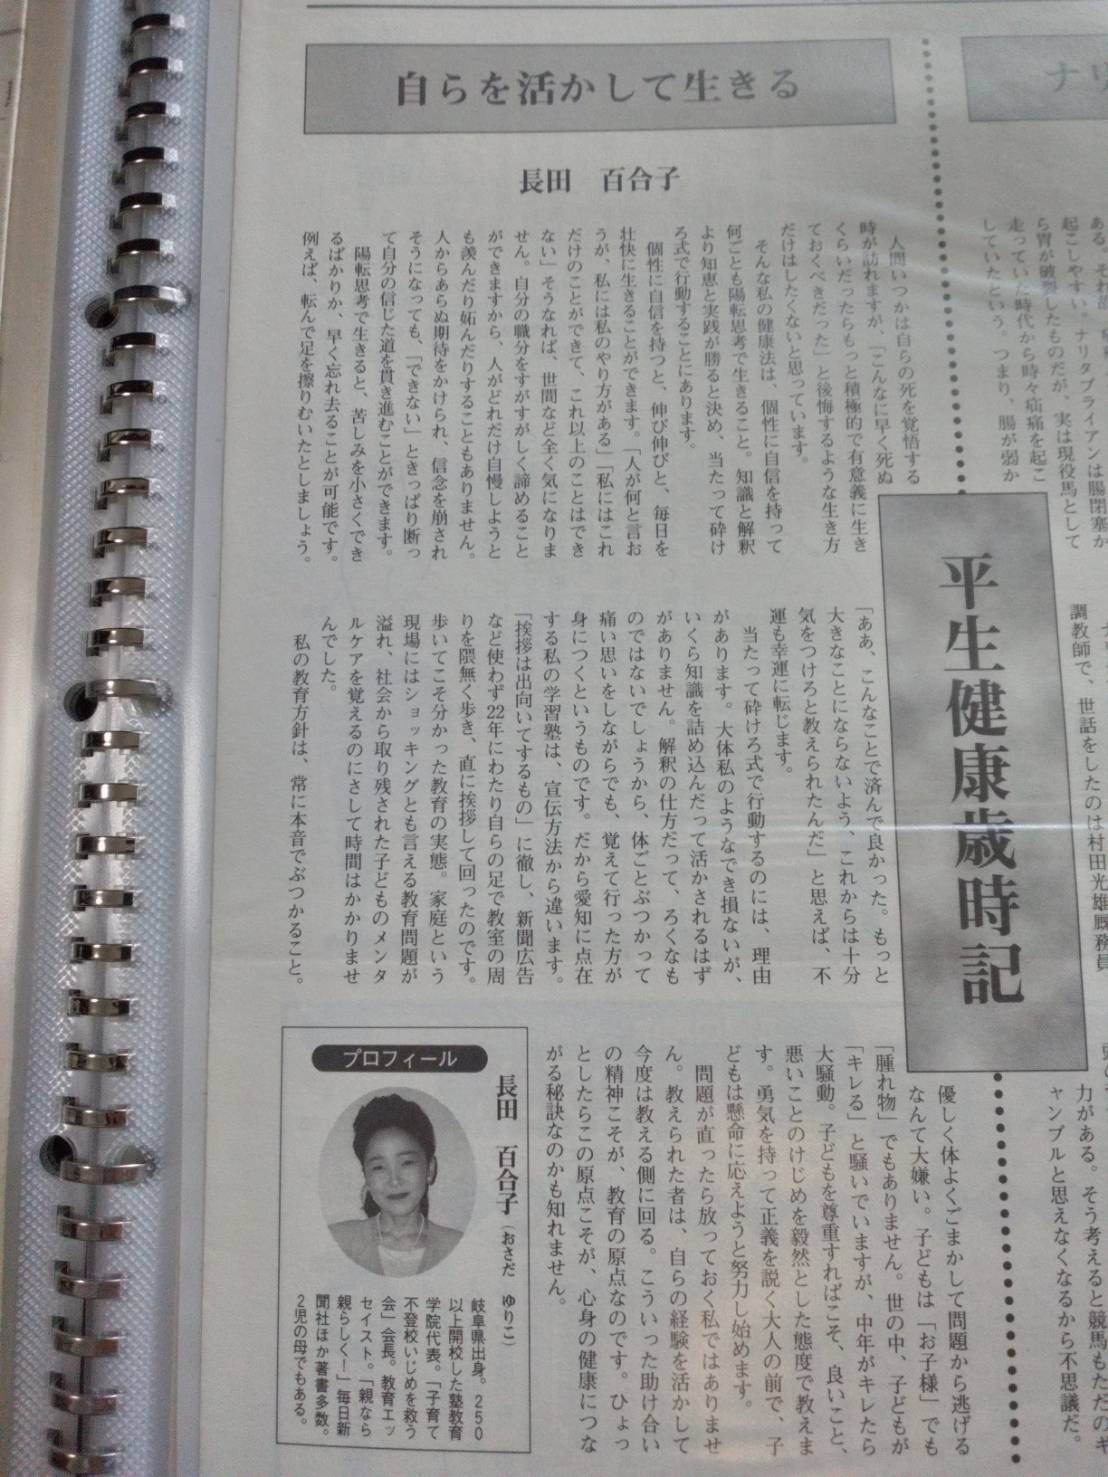 自らを活かして生きる
長田　百合子
人間いつかは自らの死を覚悟する
時が訪れますが、「こんなに早く死ぬ
くらいだったらもっと積極的で有意義に生き
ておくべきだった」と後悔するような生き方
だけはしたくないと思っています。
そんな私の健康法は、個性に自信を持って
何ごとも陽転思考で生きること。知識と解釈
より知恵と実践が勝ると決め、当たって砕け
ろ式で行動することにあります。
個性に自信を持つと、伸び伸びと、毎日を
壮快に生きることができます。「人が何と言お
うが、私には私のやり方がある」「私にはこれ
だけのことができて、これ以上のことはでき
ない」そうなれば、世間など全く気になりま
せん。自分の職分をすがすがしく諦めること
ができますから、人がどれだけ自慢しようと
も羨んだり妬んだりすることもありません。
人からあらぬ期待をかけられ、信念を崩され
そうになっても、「できない」ときっぱり断っ
て自分の信じた道を貫き進むことができます。
陽転思考で生きると、苦しみを小さくでき
るばかりか、早く忘れ去ることが可能です。
例えば、転んで足を擦りむいたとしましょう。
「ああ、こんなことで済んで良かった。もっと
大きなことにならないよう、これからは十分
気をつけろと教えられたんだ」と思えば、不
運も幸運に転じます。
当たって砕けろ式で行動するのには、理由
があります。大体私のようなでき損ないが、
いくら知識を詰め込んだって活かされるはず
がありません。解釈の仕方だって、ろくなも
のではないでしょうから、体ごとぶつかって
痛い思いをしながらでも、覚えて行った方が
身につくというものです。だから愛知に点在
する私の学習塾は、宣伝方法から違います。
「挨拶は出向いてするもの」に徹し、新聞広告
など使わず22年にわたり自らの足で教室の周
りを隈無く歩き、直に挨拶して回ったのです。
歩いてこそ分かった教育の実態。家庭という
現場にはショッキングとも言える教育問題が
溢れ、社会から取り残された子どものメンタ
ルケアを覚えるのにさして時間はかかりませ
んでした。
私の教育方針は、常に本音でぶつかること。
優しく体よくごまかして問題から逃げる
なんて大嫌い。子どもは「お子様」でも
「腫れ物」でもありません。世の中、子どもが
「キレる」と騒いでいますが、中年がキレたら
大騒動。子どもを尊重すればこそ、良いこと、
悪いことのけじめを毅然とした態度で教えま
す。勇気を持って正義を説く大人の前で、子
どもは懸命に応えようと努力し始めます。
問題が直ったら放っておく私ではありませ
ん。教えられた者は、自らの経験を活かして
今度は教える側に回る。こういった助け合い
の精神こそが、教育の原点なのです。ひょっ
としたらこの原点こそが、心身の健康につな
がる秘訣なのかも知れません。
プロフィール
長田　百合子（おさだ　ゆりこ）
岐阜県出身。250
以上開校した塾教育
学院代表。「子育て
不登校いじめを救う
会」会長。教育エッ
セイスト。「親なら
親らしく！」毎日新
聞社ほか著書多数。
2児の母でもある。
平生健康歳時記
ナリ
起こしやすい。ナリタブライアンは腸閉塞か
ら胃が破裂したものだが、実は現役馬として
走っていた時代から時々疝痛を起こ
していたという。つまり、腸が弱か
調教師で、世話をしたのは村田光雄厩務員
力がある。そう考えると競馬もただのギ
ャンブルと思えなくなるから不思議だ。